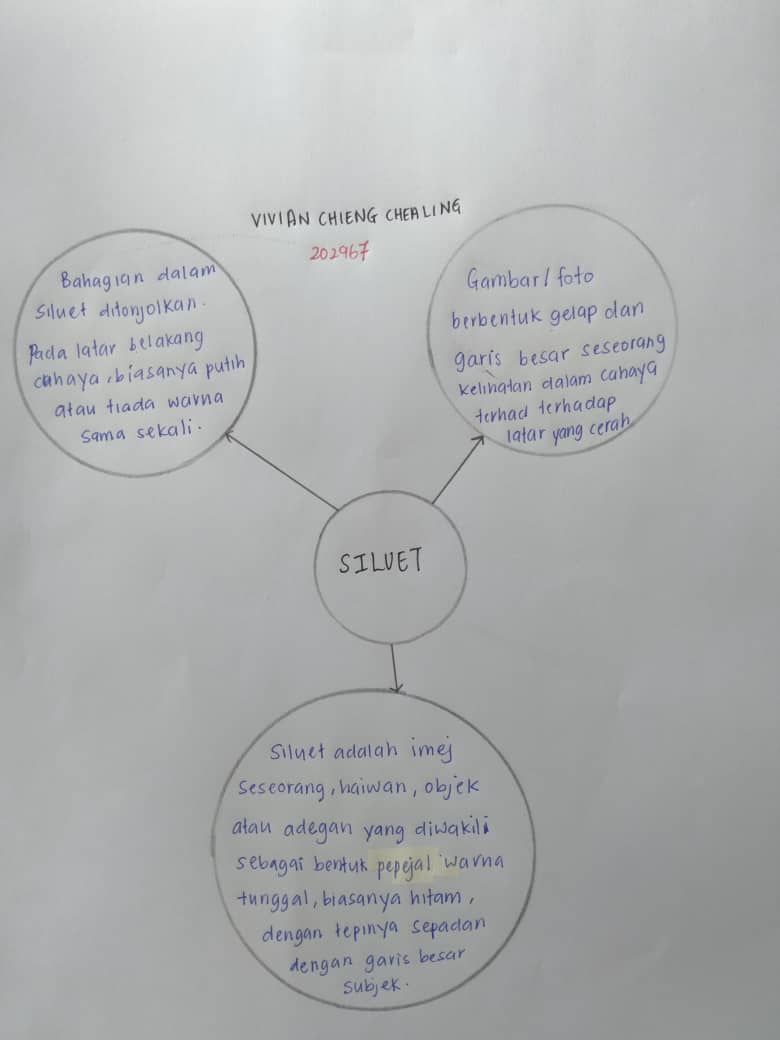 VIVIAN CHIENG CHEALING
202967
Bahagian dalam
siluet ditonjolkan.
Pada latar belakang
cahaya, biasanya putih
atau tiada warna
sama sekali.
Gambar/foto
berbentuk gelap dan
garis besar seseorang
kelihatan dalam cahaya
terhad terhadap
latar yang cerah
SILUET
Siluet adalah imej
seseorang, haiwan, objek
atau adegan yang diwakili
sebagai bentuk pepejal warna
tunggal, biasanya hitam,
dengan tepinya sepadan
dengan garis besar
subjek.